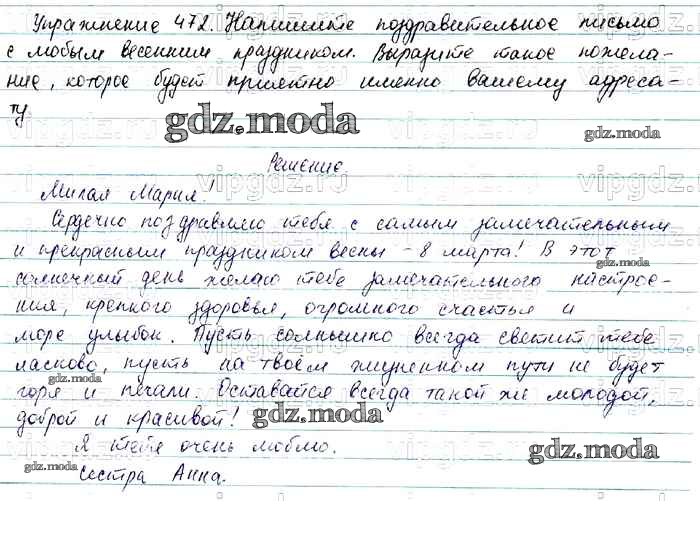 Упражнение 472. Напишите поздравительное письмо
с любым весенним праздником. Выразите такое пожела-
ние, которое будет приятно именно вашему адреса-
ту
gdz.moda
gdz.moda
Решение.
Милая Мария!
Сердечно поздравляю тебя с самым замечательным
и прекрасным праздником весны - 8 марта! В этот
gdz.moda
солнечный день желаю тебе замечательного настрое-
ния, крепкого здоровья, огромного счастья и
море улыбок. Пусть солнышко всегда светит тебе
ласково, пусть на твоём жизненном пути не будет
gdz.moda
горя и печали. Оставайся всегда такой же молодой,
доброй и красивой!
gdz.moda
Я тебя очень люблю.
gdz.moda
gdz.moda
Сестра Анна.